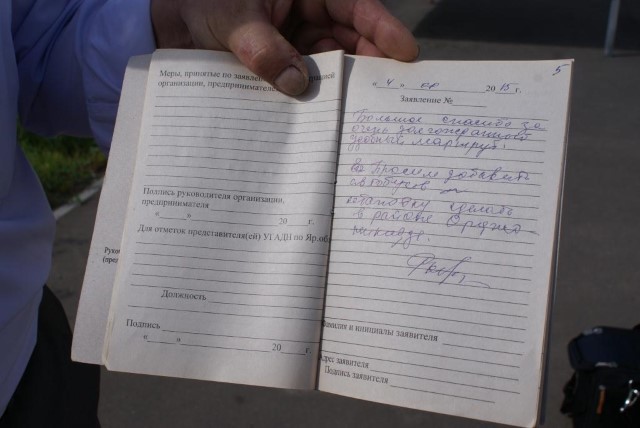 Меры, принятые по заявлению
организации, предпринимателем
Подпись руководителя организации,
предпринимателя
«____»________20____г.
Для отметок представителя(ей) УГАДН по Яр.об
Должность
Подпись
«____»________20____г.
5
«4» 2015 г.
Заявление №
Большое спасибо за
очень долгожданный
удобный маршрут!
Просим добавить
автобусов
остановку сделать
в районе Орджо-
никидзе.
Фамилия и инициалы заявителя
Адрес заявителя
Подпись заявителя